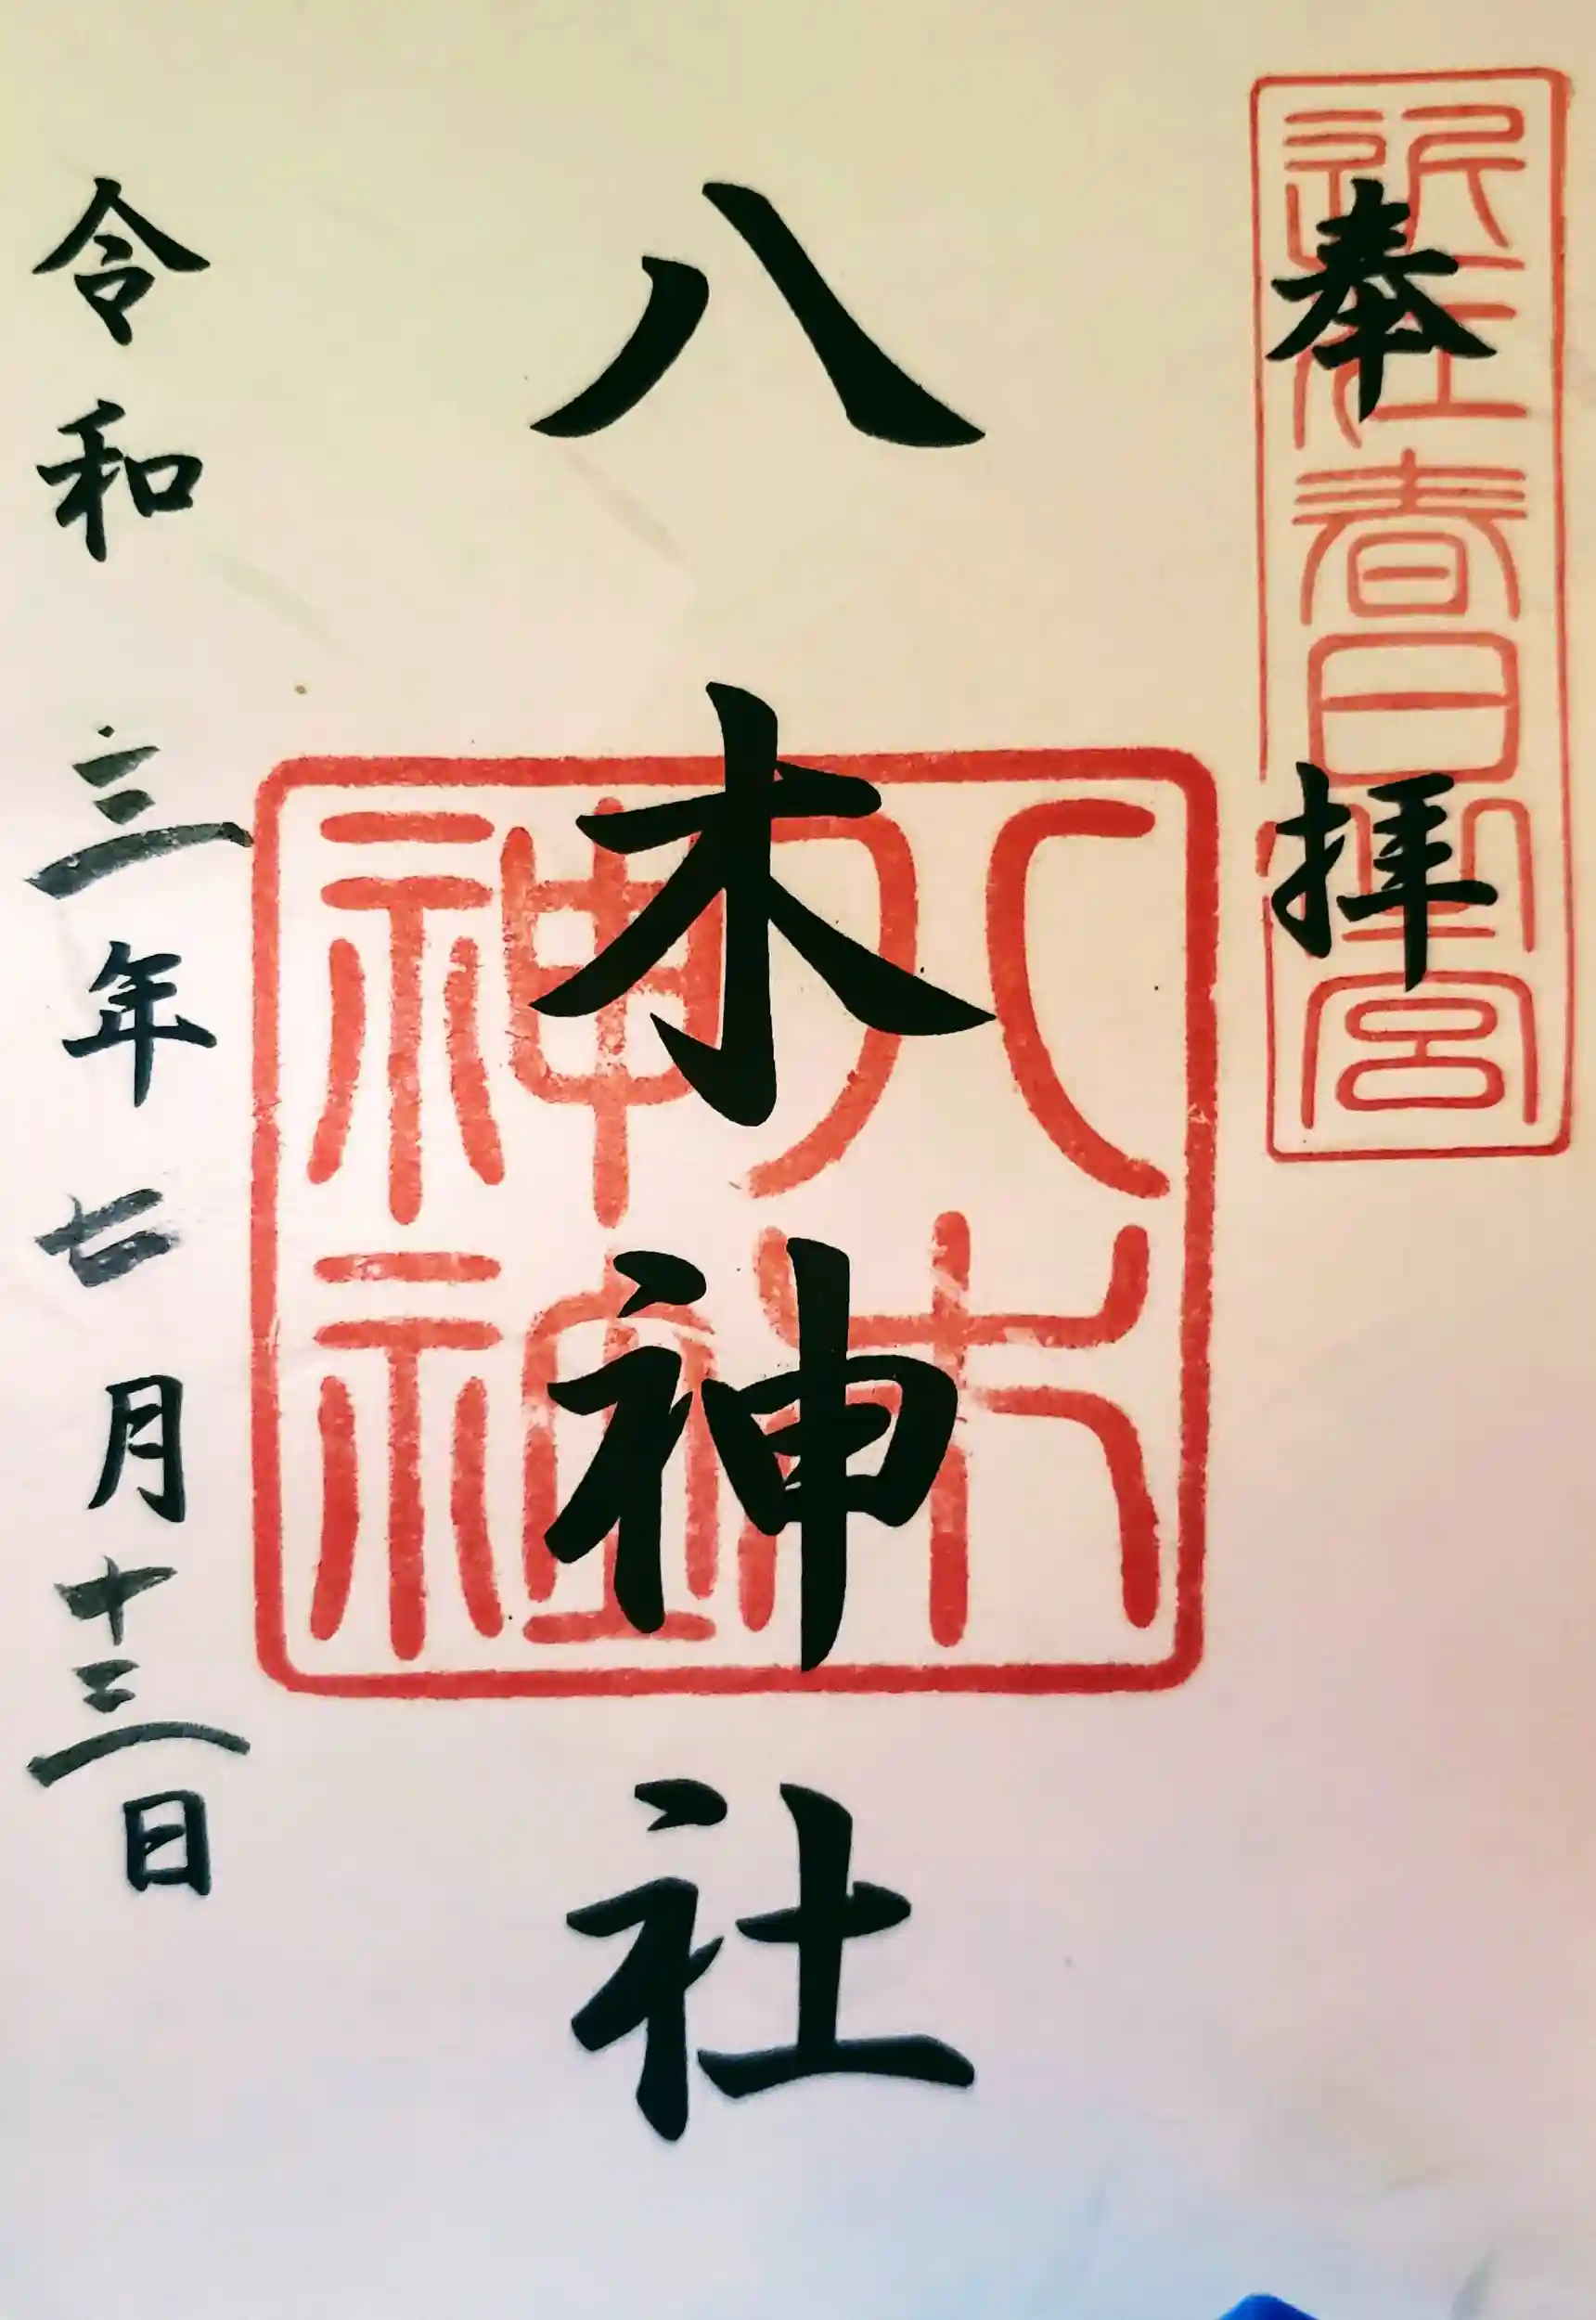 奉拝
春日 宮
八木神社
八木
神社
令和三年七月十三日